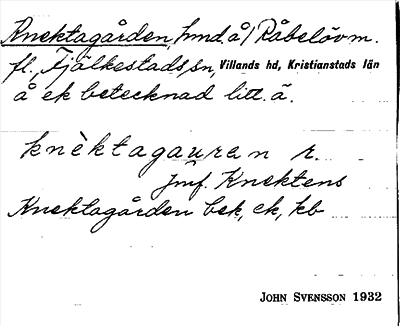 Knektagården, hmd. å / Råbelöv m.
fl., Fjälkestads sn, Villands hd, Kristianstads län
å ek betecknad litt. ä.
knèktagaųrən r.
jmf. Knektens
Knektagården bek, ek, kb
JOHN SVENSSON 1932